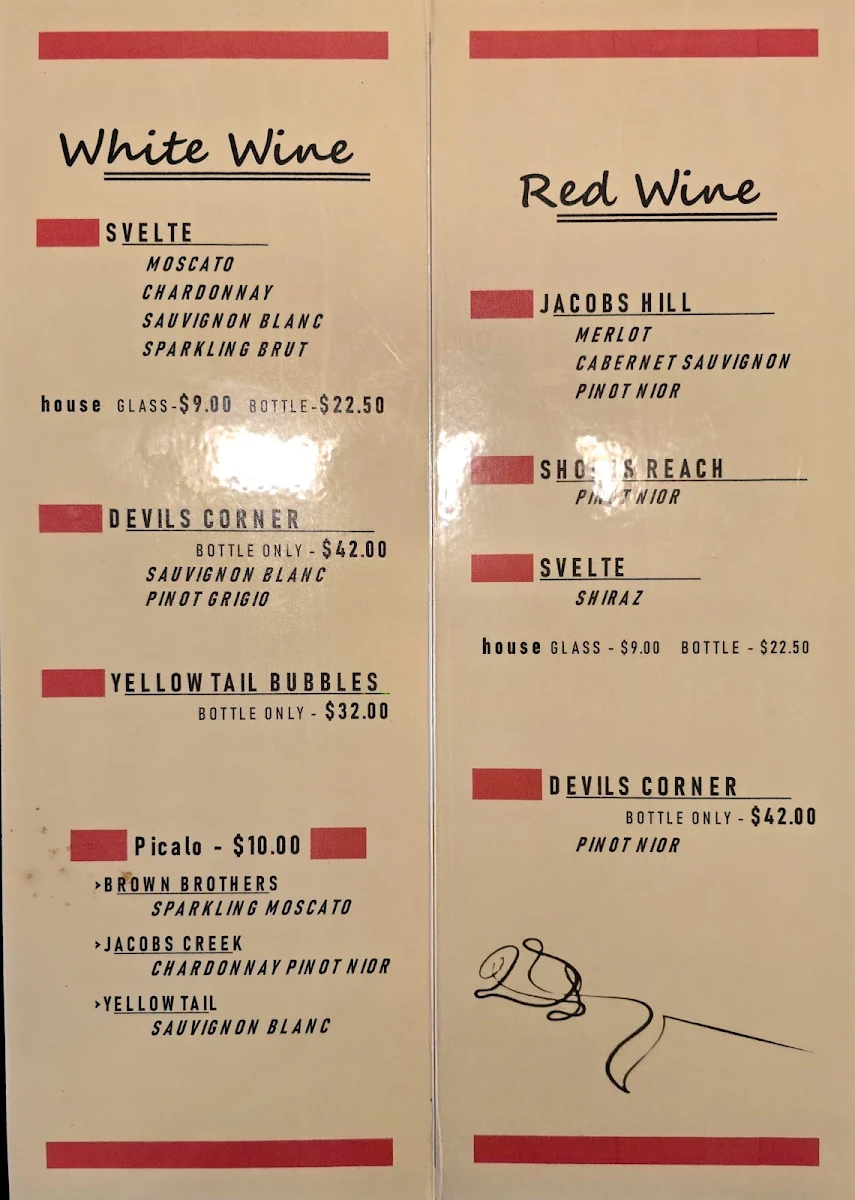 White Wine
SVELTE
MOSCATO
CHARDONNAY
SAUVIGNON BLANC
SPARKLING BRUT
house GLASS-$9.00 BOTTLE-$22.50
DEVILS CORNER
BOTTLE ONLY - $42.00
SAUVIGNON BLANC
PINOT GRIGIO
YELLOW TAIL BUBBLES
BOTTLE ONLY - $32.00
Picalo - $10.00
>BROWN BROTHERS
SPARKLING MOSCATO
>JACOBS CREEK
CHARDONNAY PINOT NIOR
>YELLOW TAIL
SAUVIGNON BLANC
Red Wine
JACOBS HILL
MERLOT
CABERNET SAUVIGNON
PINOT NIOR
REACH
PINOT NIOR
SVELTE
SHIRAZ
house GLASS - $9.00 BOTTLE - $22.50
DEVILS CORNER
BOTTLE ONLY - $42.00
PINOT NIOR